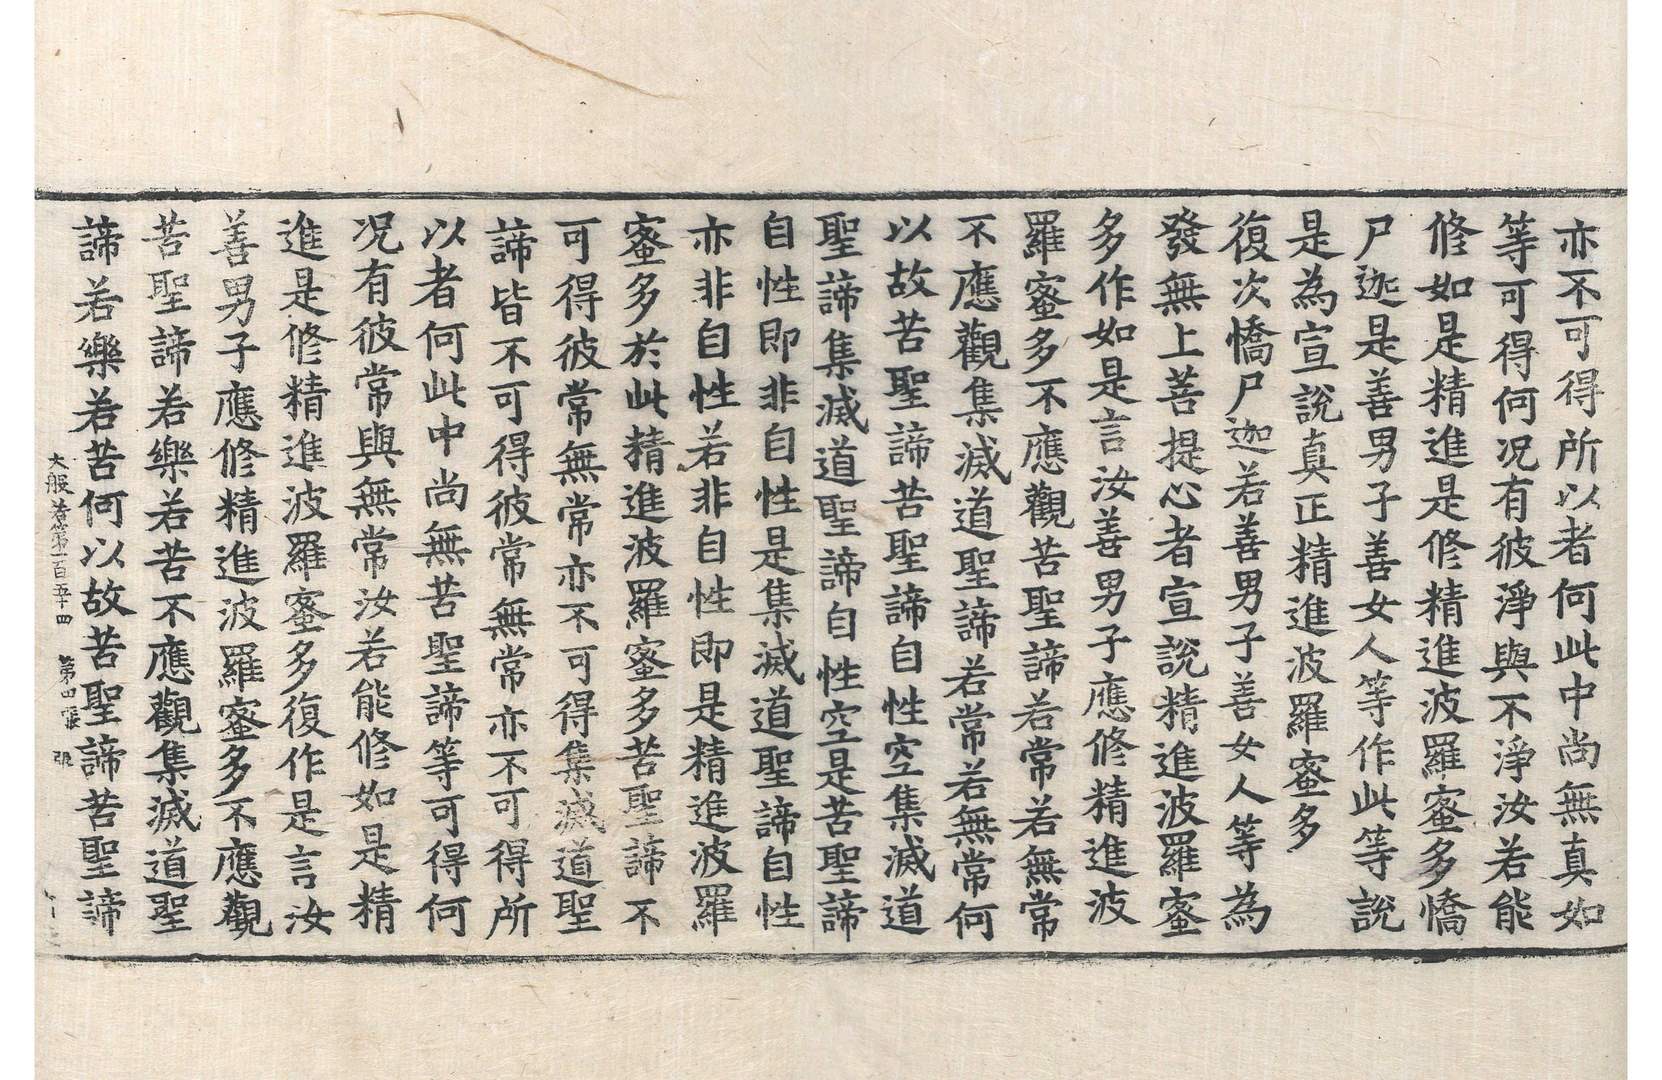 亦不可得所以者何此中尚無真如
等可得何况有彼淨與不淨汝若能
修如是精進是修精進波羅蜜多憍
尸迦是善男子善女人等作此等說
是為宣說真正精進波羅蜜多
復次憍尸迦若善男子善女人等為
發無上菩提心者宣說精進波羅蜜
多作如是言汝善男子應修精進波
羅蜜多不應觀苦聖諦若常若無常
不應觀集滅道聖諦若常若無常何
以故苦聖諦苦聖諦自性空集滅道
聖諦集滅道聖諦自性空是苦聖諦
自性即非自性是集滅道聖諦自性
亦非自性若非自性即是精進波羅
蜜多於此精進波羅蜜多苦聖諦不
可得彼常無常亦不可得集滅道聖
諦皆不可得彼常無常亦不可得所
以者何此中尚無苦聖諦等可得何
况有彼常與無常汝若能修如是精
進是修精進波羅蜜多復作是言汝
善男子應修精進波羅蜜多不應觀
苦聖諦若樂若苦不應觀集滅道聖
諦若樂若苦何以故苦聖諦苦聖諦
大般若第一百五十四 第四張